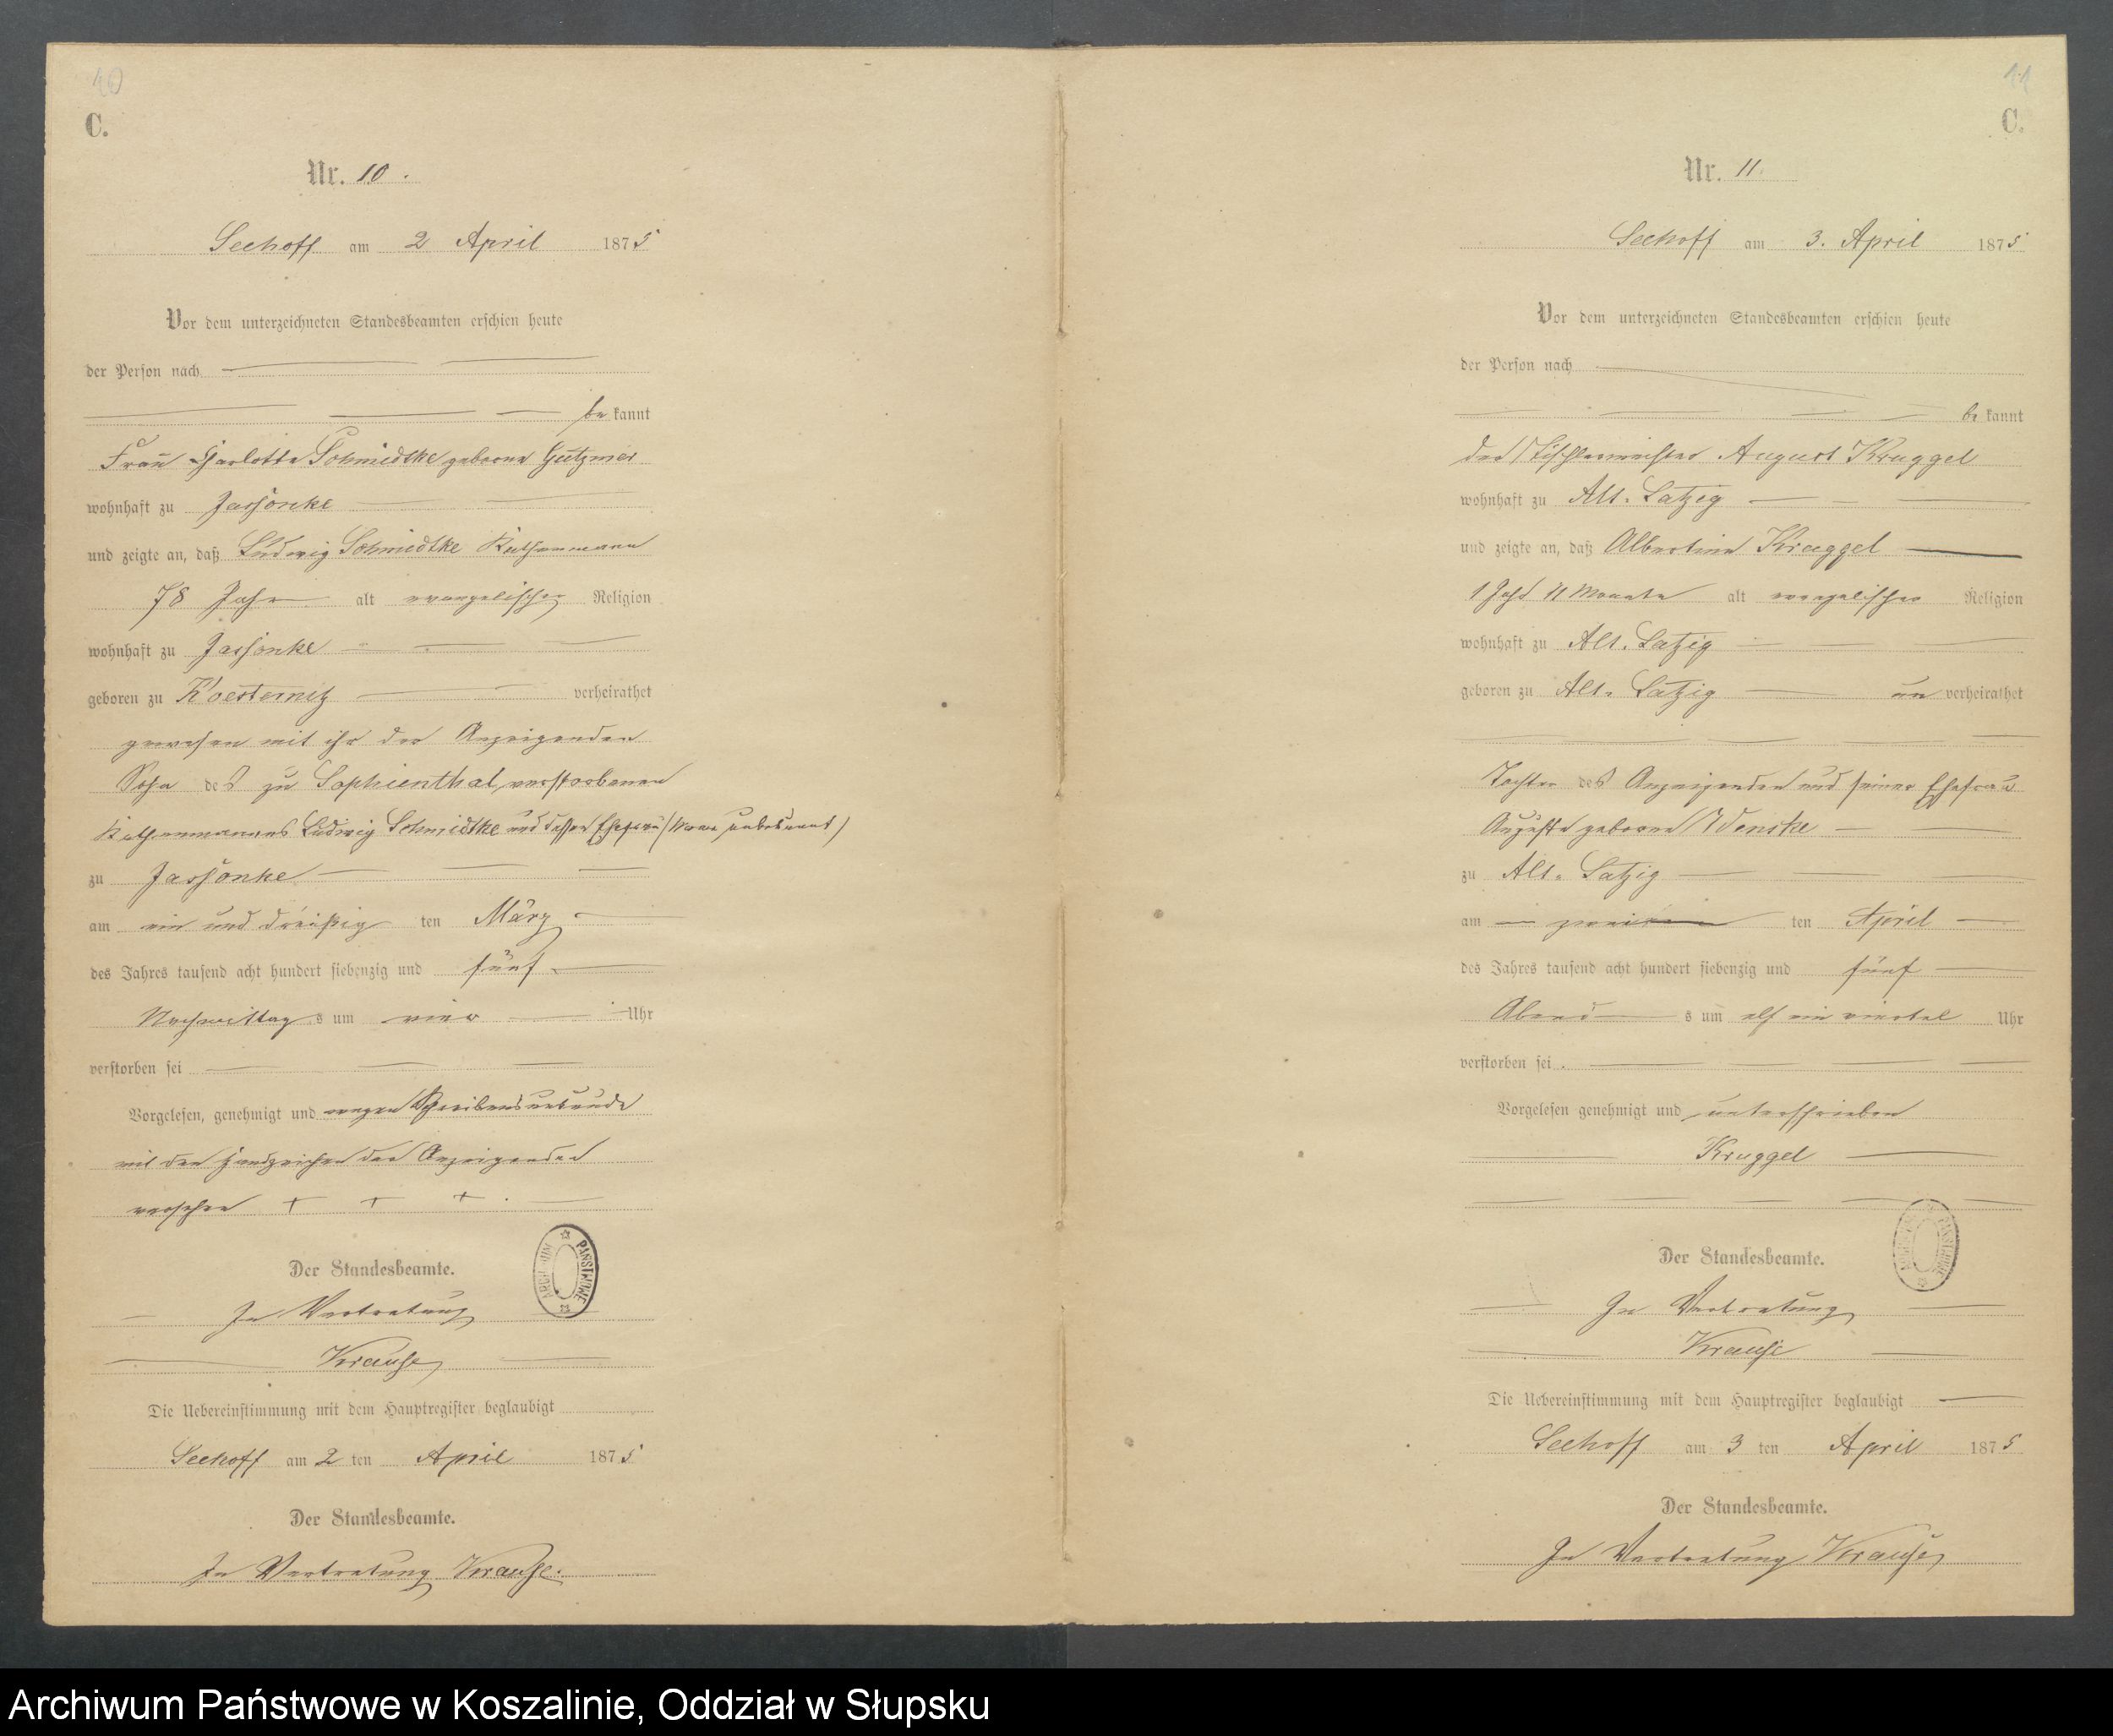 10
C.
Nr. 10.
Seehoff am 2 April 1875
Vor dem unterzeichneten Standesbeamten erschien heute
der Person nach
be kannt
Frau Charlotte Schmidtke geborne Gutzmer
wohnhaft zu Jassonke
und zeigte an, daß Ludwig Schmidtke Kathenmann
78 Jahr alt evangelischer Religion
wohnhaft zu Jassonke
geboren zu Koesternitz verheirathet
gewesen mit ihr der Anzeigenden
Sohn des zu Sophienthal verstorbenen
Kathenmannes Ludwig Schmidtke und dessen Ehefrau (Name unbekannt)
zu Jassonke
am ein und dreißig ten März
des Jahres tausend acht hundert siebenzig und fünf
Nachmittag s um vier Uhr
verstorben sei
Vorgelesen, genehmigt und wegen Schreibensunkunde
mit den Handzeichen der Anzeigenden
versehen + + +.
Der Standesbeamte.
In Vertretung
Krause
ARCHIWUM PAŃSTWOWE
Die Uebereinstimmung mit dem Hauptregister beglaubigt
Seehoff am 2 ten April 1875
Der Standesbeamte.
In Vertretung Krause.
11
C.
Nr. 11
Seehoff am 3. April 1875
Vor dem unterzeichneten Standesbeamten erschien heute
der Person nach
be kannt
der Tischlermeister August Kruggel
wohnhaft zu Alt-Latzig
und zeigte an, daß Albertine Kruggel
1 Jahr 11 Monate alt evangelischer Religion
wohnhaft zu Alt-Latzig
geboren zu Alt-Latzig un verheirathet
Tochter des Anzeigenden und seiner Ehefrau
Auguste geborne Wenske
zu Alt-Latzig
am zweiten ten April
des Jahres tausend acht hundert siebenzig und fünf
Abend s um elf ein viertel Uhr
verstorben sei.
Vorgelesen genehmigt und unterschrieben
Kruggel
Der Standesbeamte.
In Vertretung
Krause
ARCHIWUM PAŃSTWOWE
Die Uebereinstimmung mit dem Hauptregister beglaubigt
Seehoff am 3 ten April 1875
Der Standesbeamte.
In Vertretung Krause
Archiwum Państwowe w Koszalinie, Oddział w Słupsku